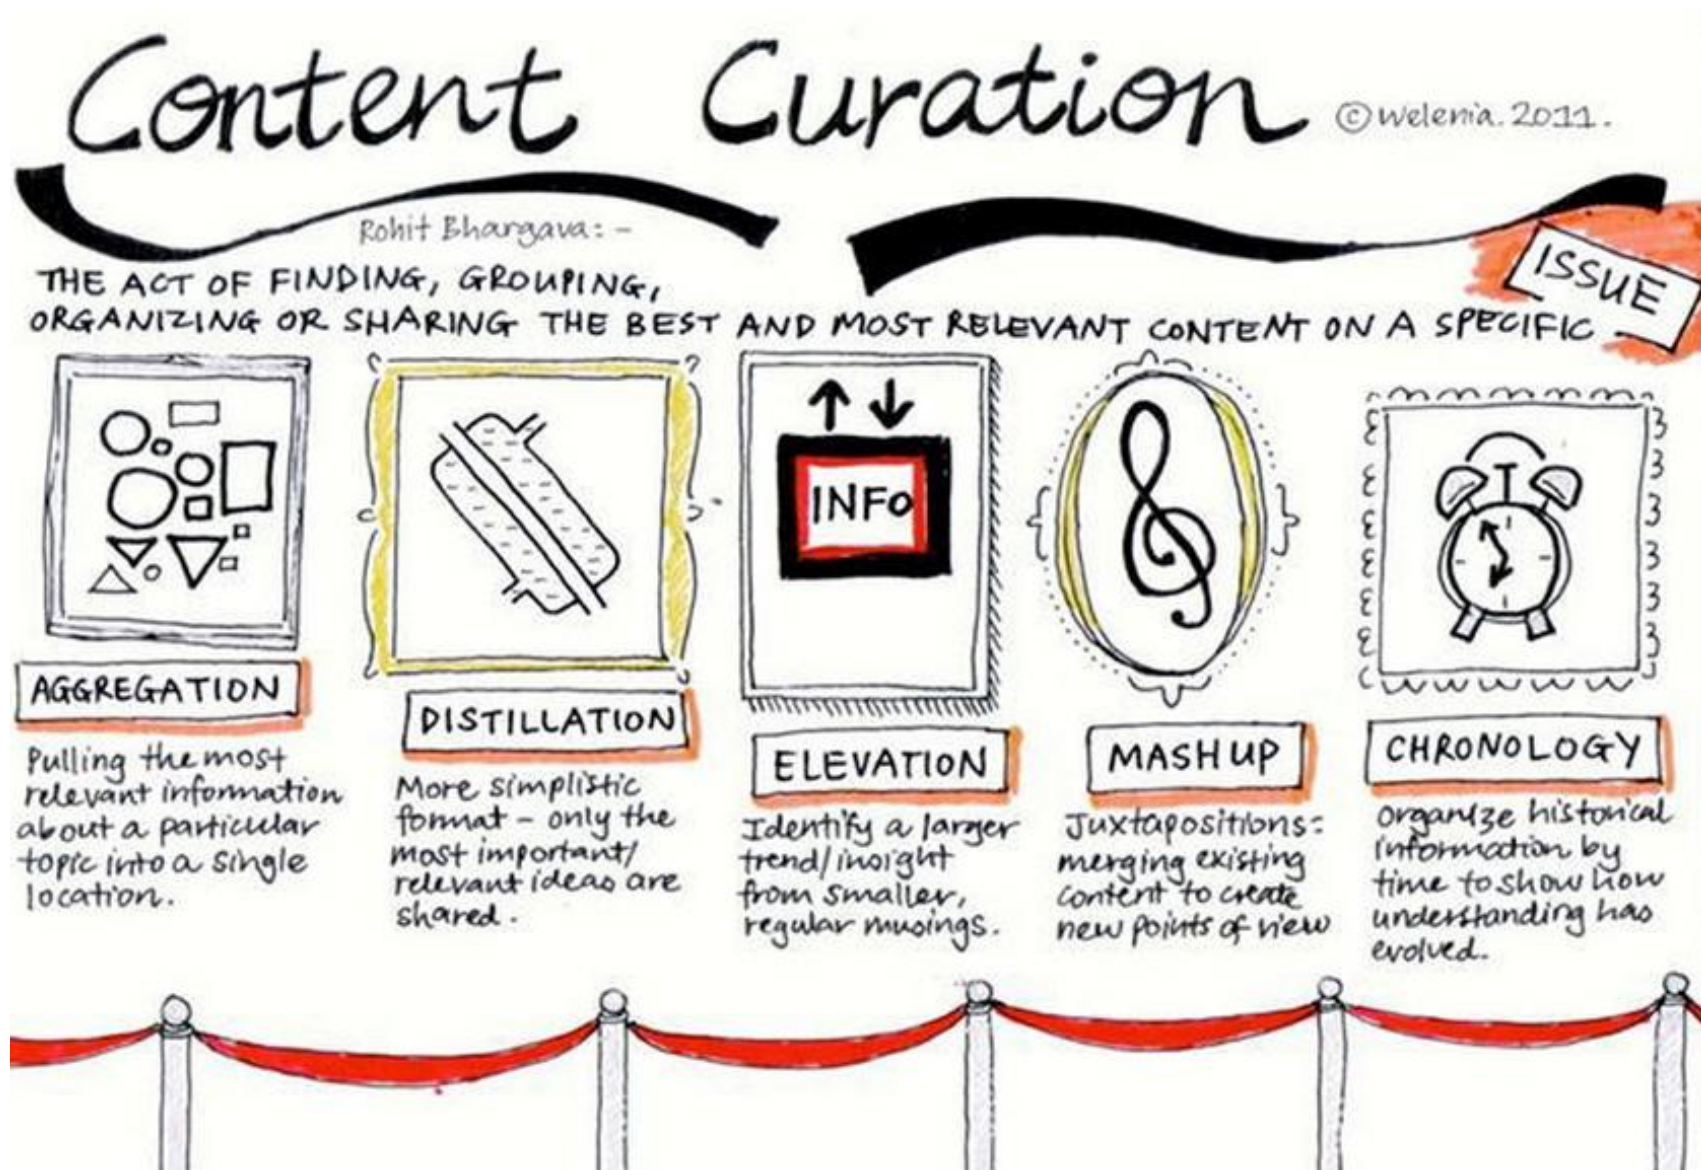 Content Curation ©welenia.2011.
Rohit Bhargava:-
THE ACT OF FINDING, GROUPING,
ORGANIZING OR SHARING THE BEST AND MOST RELEVANT CONTENT ON A SPECIFIC
ISSUE
INFO
AGGREGATION
Pulling the most
relevant information
about a particular
topic into a single
location.
DISTILLATION
More simplistic
format - only the
most important/
relevant ideas are
shared.
ELEVATION
Identify a larger
trend/insight
from smaller,
regular musings.
MASHUP
Juxtapositions:
merging existing
content to create
new points of view
CHRONOLOGY
organize historical
information by
time to show how
understanding has
evolved.